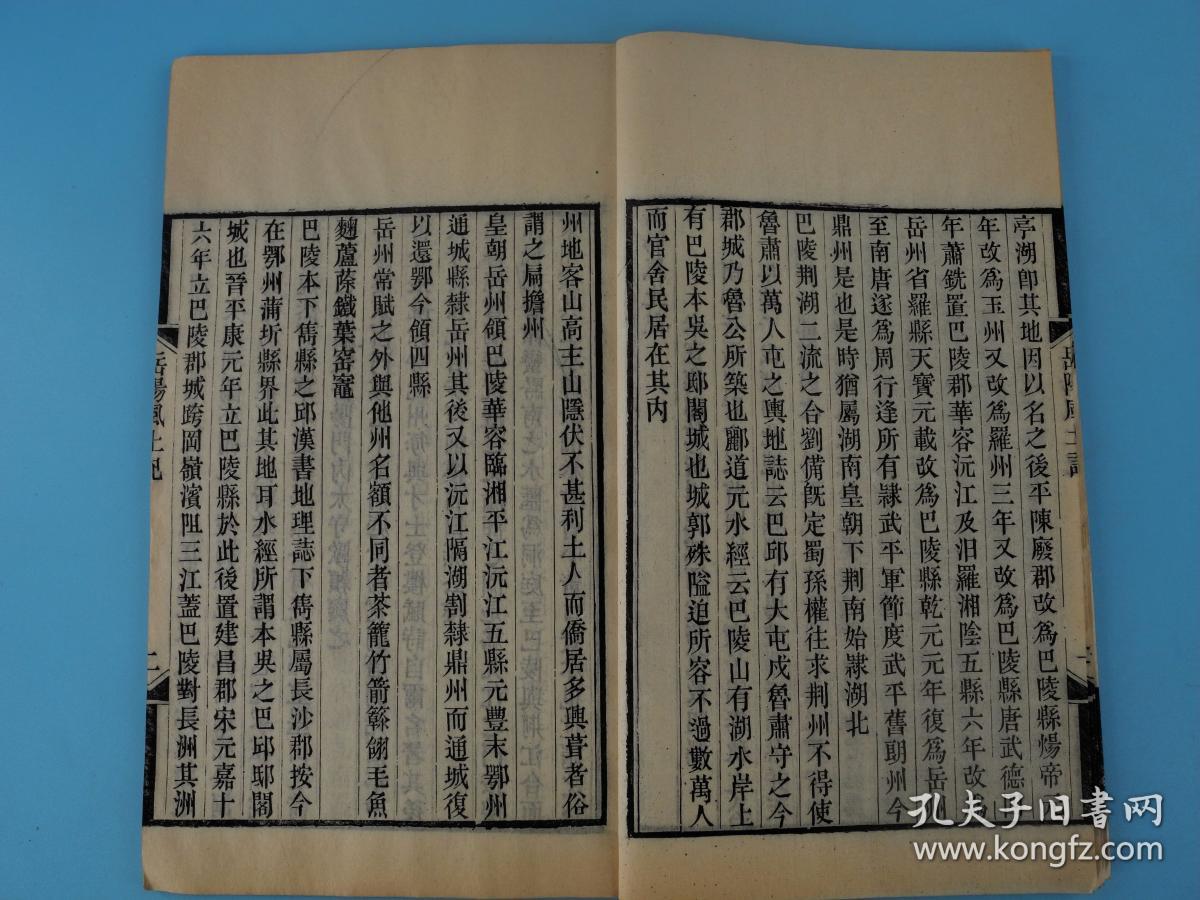 亭湖卽其地因以名之後平陳廢郡改爲巴陵縣煬帝
年改爲玉州又改爲羅州三年又改爲巴陵縣唐武德
年蕭銑置巴陵郡華容沅江及汨羅湘陰五縣六年改
岳州省羅縣天寶元載改爲巴陵縣乾元元年復爲岳
至南唐遂爲周行逢所有隸武平軍節度武平舊朗州今
鼎州是也是時猶屬湖南皇朝下荆南始隸湖北
巴陵荆湖二流之合劉備旣定蜀孫權往求荆州不得使
魯肅以萬人屯之輿地誌云巴邱有大屯戍魯肅守之今
郡城乃魯公所築也酈道元水經云巴陵山有湖水岸上
有巴陵本吳之邸閣城也城郭殊隘迫所容不過數萬人
而官舍民居在其内
州地客山高主山隱伏不甚利土人而僑居多興葺者俗
謂之扁擔州
皇朝岳州領巴陵華容臨湘平江沅江五縣元豐末鄂州
通城縣隸岳州其後又以沅江隔湖割隸鼎州而通城復
以還鄂今領四縣
岳州常賦之外與他州名額不同者茶籠竹箭簳翎毛魚
麯蘆蔴鐵葉窑竈
巴陵本下雋縣之邱漢書地理誌下雋縣屬長沙郡按今
在鄂州蒲圻縣界此其地耳水經所謂本吳之巴邱邸閣
城也晉平康元年立巴陵縣於此後置建昌郡宋元嘉十
六年立巴陵郡城跨岡嶺濱阻三江蓋巴陵對長洲其洲
岳陽風土記
二
孔夫子旧书网
www.kongfz.com